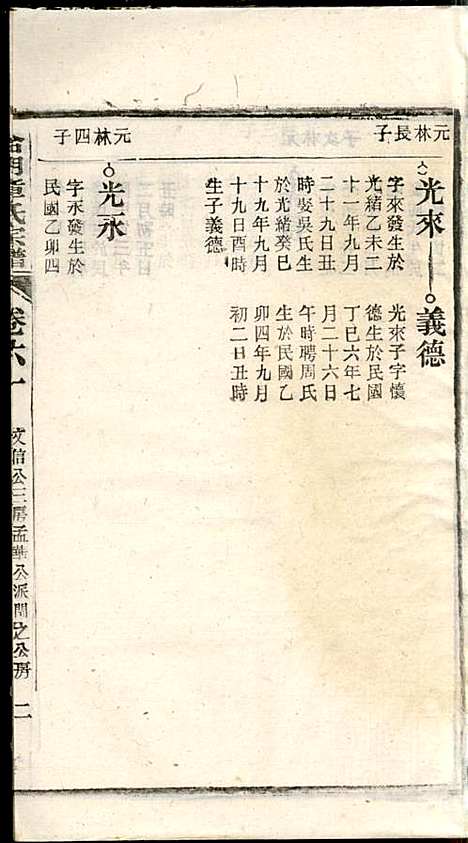 元林長子
光來
字來發生於
光緒乙未二
十一年九月
二十九日丑
時娶吳氏生
於光緒癸巳
十九年九月
十九日酉時
生子義德
義德
光來子字懷
德生於民國
丁巳六年七
月二十六日
午時聘周氏
生於民國乙
卯四年九月
初二日丑時
元林四子
光永
字永發生於
民國乙卯四
氏宗譜
卷六十
文信公三房孟華公派開之公房
二